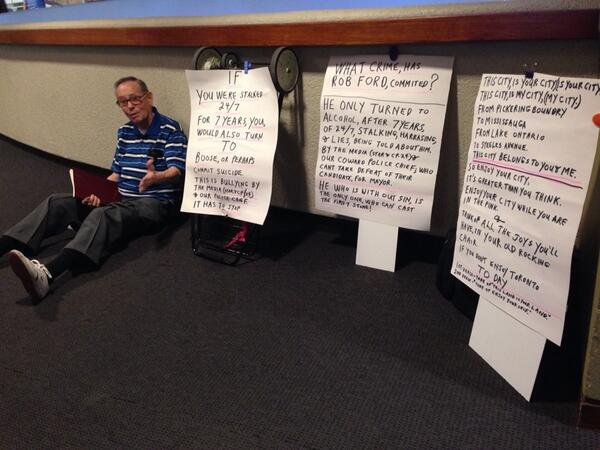 IF
YOU WERE STALKED
24/7
FOR 7 YEARS, YOU,
WOULD ALSO TURN
TO
BOOSE, OR PERHAPS
COMMIT SUICIDE
THIS IS BULLYING BY
THE MEDIA
& OUR POLICE
IT HAS TO STOP
WHAT CRIME, HAS
ROB FORD, COMMITED?
HE ONLY TURNED TO
ALCOHOL, AFTER 7 YEARS,
OF 24/7, STALKING, HARRASING,
& LIES, BEING TOLD ABOUT HIM,
BY THE MEDIA
& OUR COWARD POLICE CHIEF, WHO
CANT TAKE DEFEAT OF THEIR
CANDIDATE, FOR MAYOR.
HE WHO IS WITH OUT SIN, IS
THE ONLY ONE, WHO CAN CAST
THE FIRST STONE!
THIS CITY IS YOUR CITY, (IS YOUR CITY)
THIS CITY IS MY CITY, (MY CITY)
FROM PICKERING BOUNDRY
TO MISSISSAUGA
FROM LAKE ONTARIO
TO STEELES AVENUE.
THIS CITY BELONGS TO YOU & ME.
SO ENJOY YOUR CITY,
IT'S GREATER THAN YOU THINK.
ENJOY YOUR CITY WHILE YOU ARE
IN THE PINK
&
THINK OF ALL THE JOYS YOU'LL
HAVE, IN YOUR OLD ROCKING
CHAIR
IF YOU DON'T ENJOY TORONTO
TO DAY